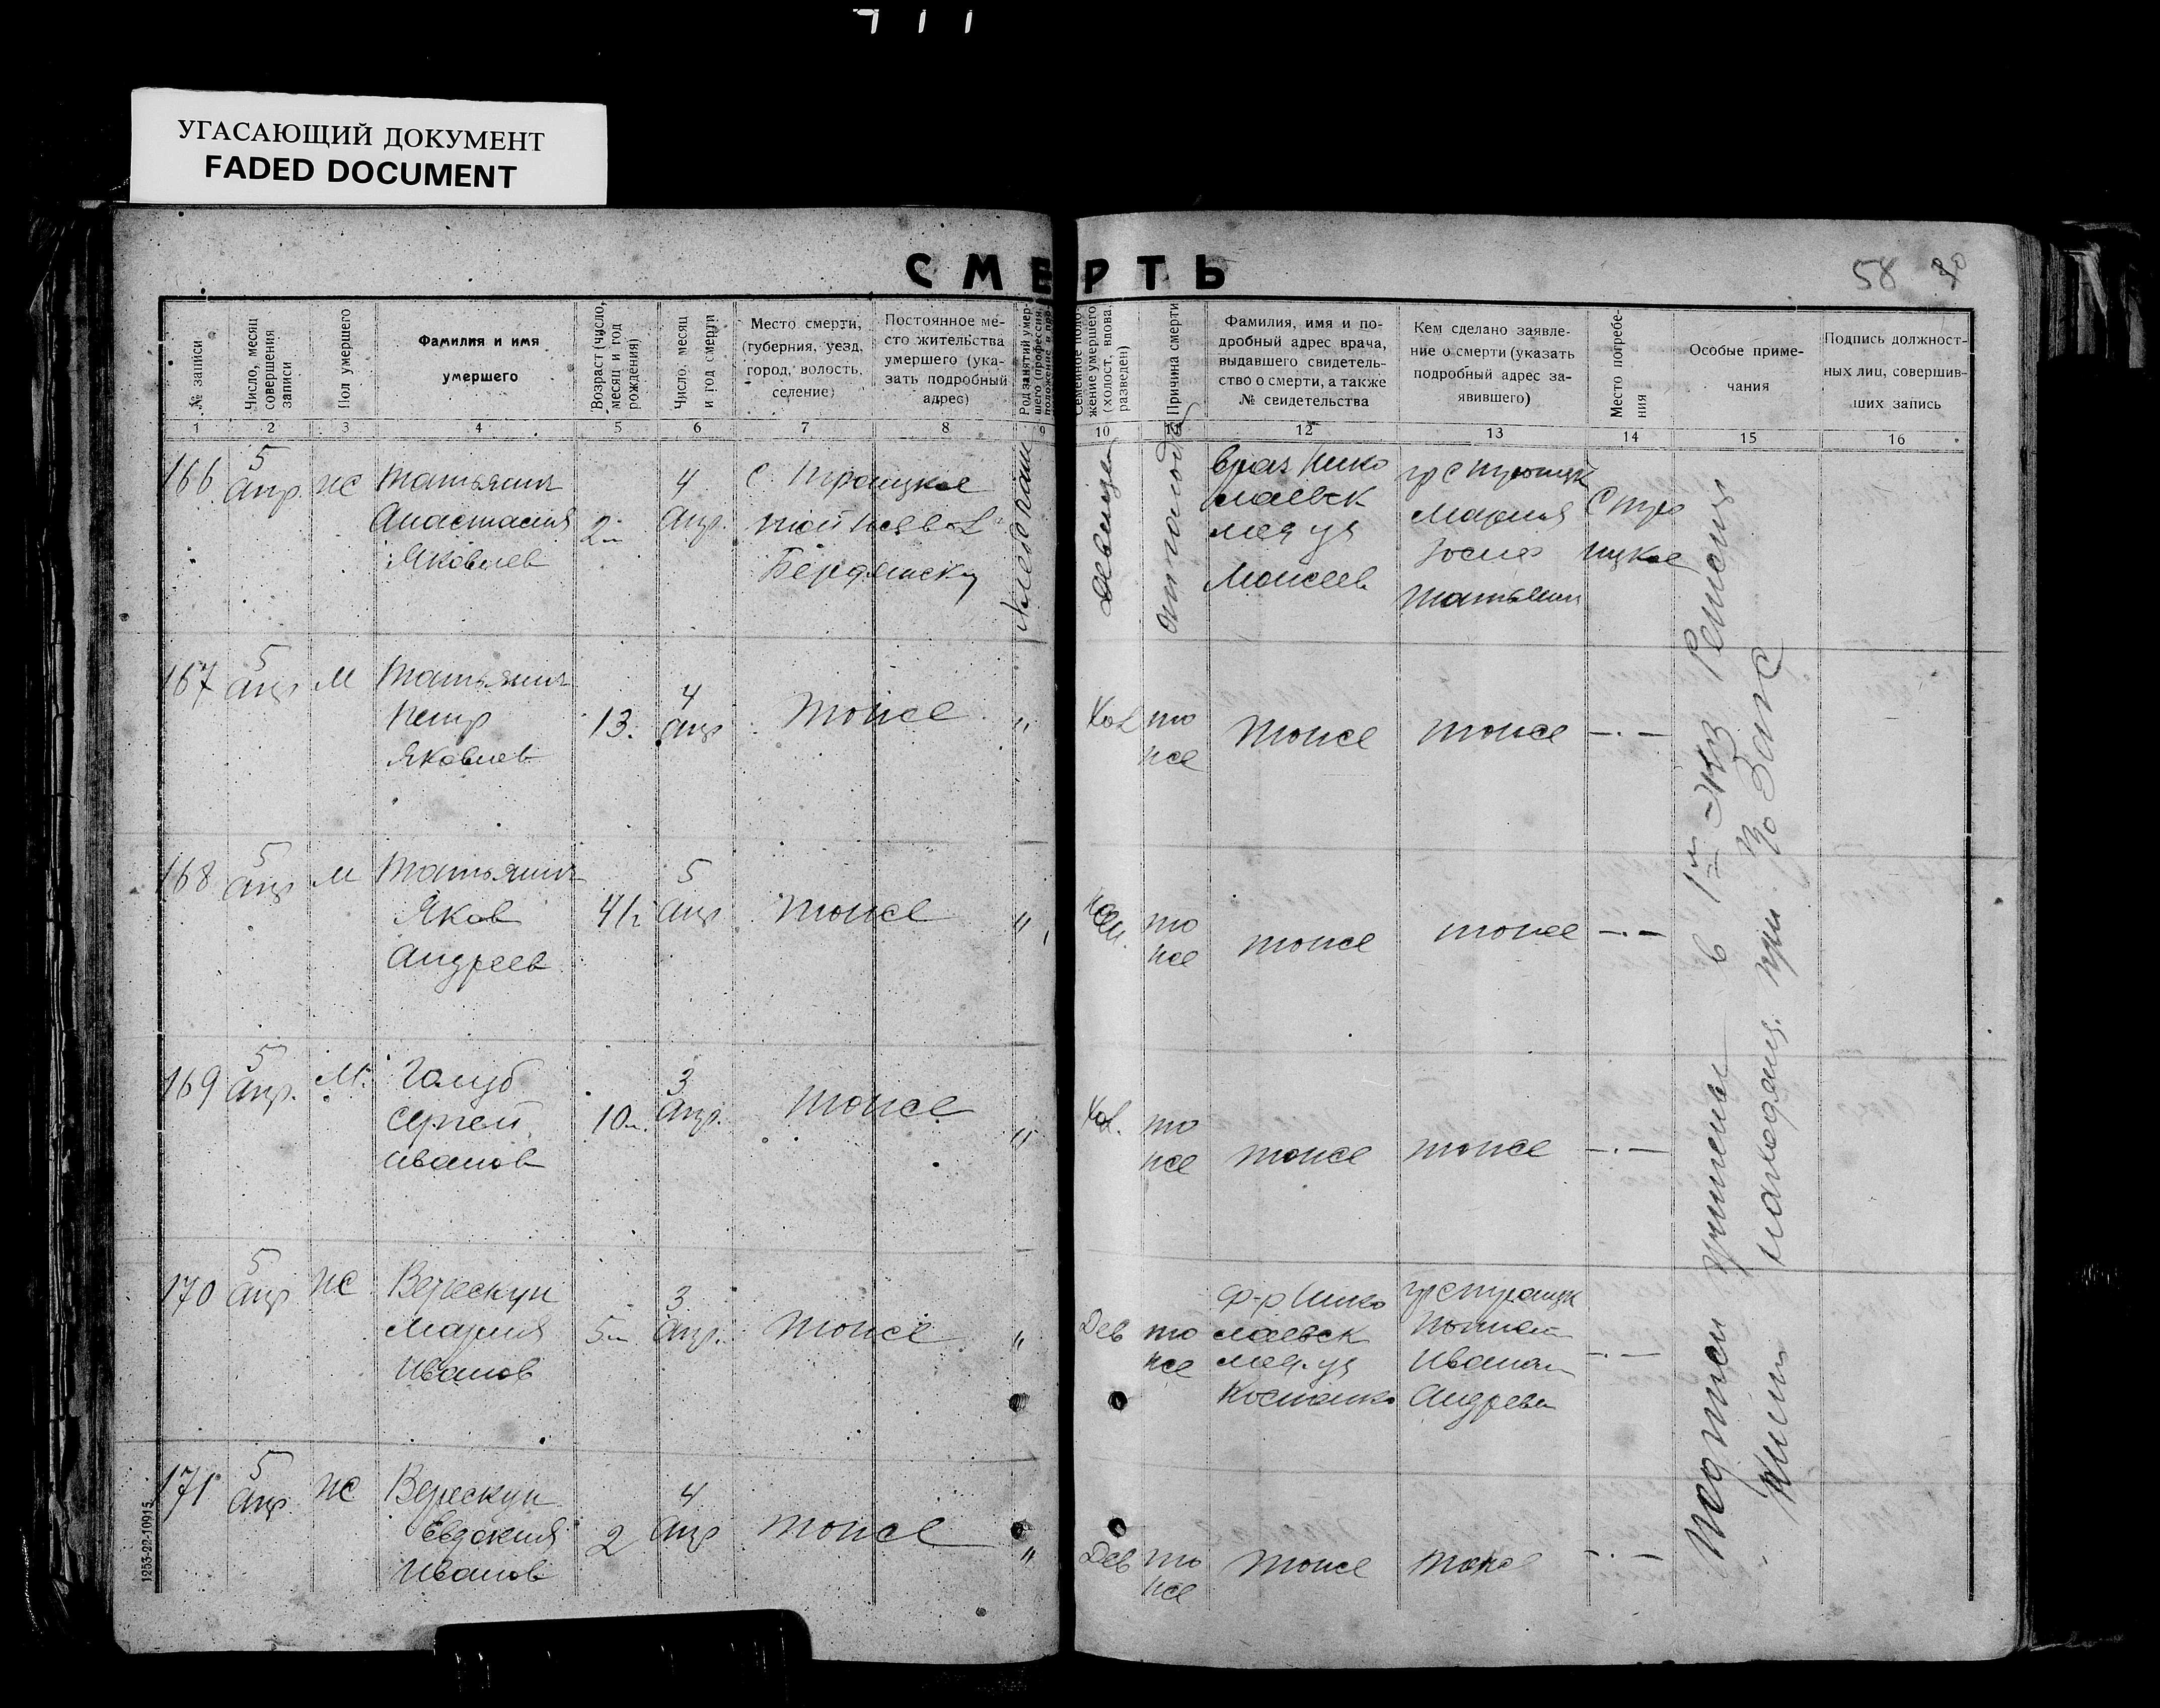 УГАСАЮЩИЙ ДОКУМЕНТ
FADED DOCUMENT
СМЕРТЬ
58
№ записи
Число, месяц совершения записи
Пол умершего
Фамилия и имя
умершего
Возраст (число, месяц и год рождения)
Число, месяц и год смерти
Место смерти,
(губерния, уезд,
город, волость,
селение)
Постоянное ме-
сто жительства
умершего (ука-
зать подробный
адрес)
Род занятий умер-
шего (профессия,
положение в про-
Семейное поло-
жение умершего
(холост., вдова,
разведен)
Причина смерти
Фамилия, имя и по-
дробный адрес врача,
выдавшего свидетель-
ство о смерти, а также
№ свидетельства
Кем сделано заявле-
ние о смерти (указать
подробный адрес за-
явившего)
Место погребе-
ния
Особые приме-
чания
Подпись должност-
ных лиц, совершив-
ших запись
1 2 3 4 5 6 7 8 9 10 12 13 14 15 16
166
5
апр.
ж
Татьянич
Анастасия
Яковлев
2
4
апр.
с. Троицкое
той же вол
Бердянску
Девица
от голода
врач Нико
лаевск
мед уч
Моисеев
гр с Троицк
Мария
Татьянич
С Тро
ицкое
167
5
апр
м
Татьянич
Петр
Яковлев
13.
4
апр
тоже
"
Хол
то
же
тоже
тоже
—.—
168
5
апр
м
Татьянич
Яков
Андреев
4½
5
апр
тоже
"
то
же
тоже
тоже
—.—
169
5
апр.
м.
Голуб
Сергей
Иванов
10м.
3
апр.
тоже
"
Хол.
то
же
тоже
тоже
—.—
170
5
апр
ж
Верескун
Мария
Иванов
5м
3
апр.
тоже
"
Дев
то
же
ф-р Нико
лаевск
мед. уч
Костенко
гр с Троицк
Иван
Андреев
—.—
171
5
апр
ж
Верескун
Евдокия
Иванов
2
4
апр
тоже
"
Дев
то
же
тоже
тоже
—.—
в 1м экз
при
Загс
1253-22-10915